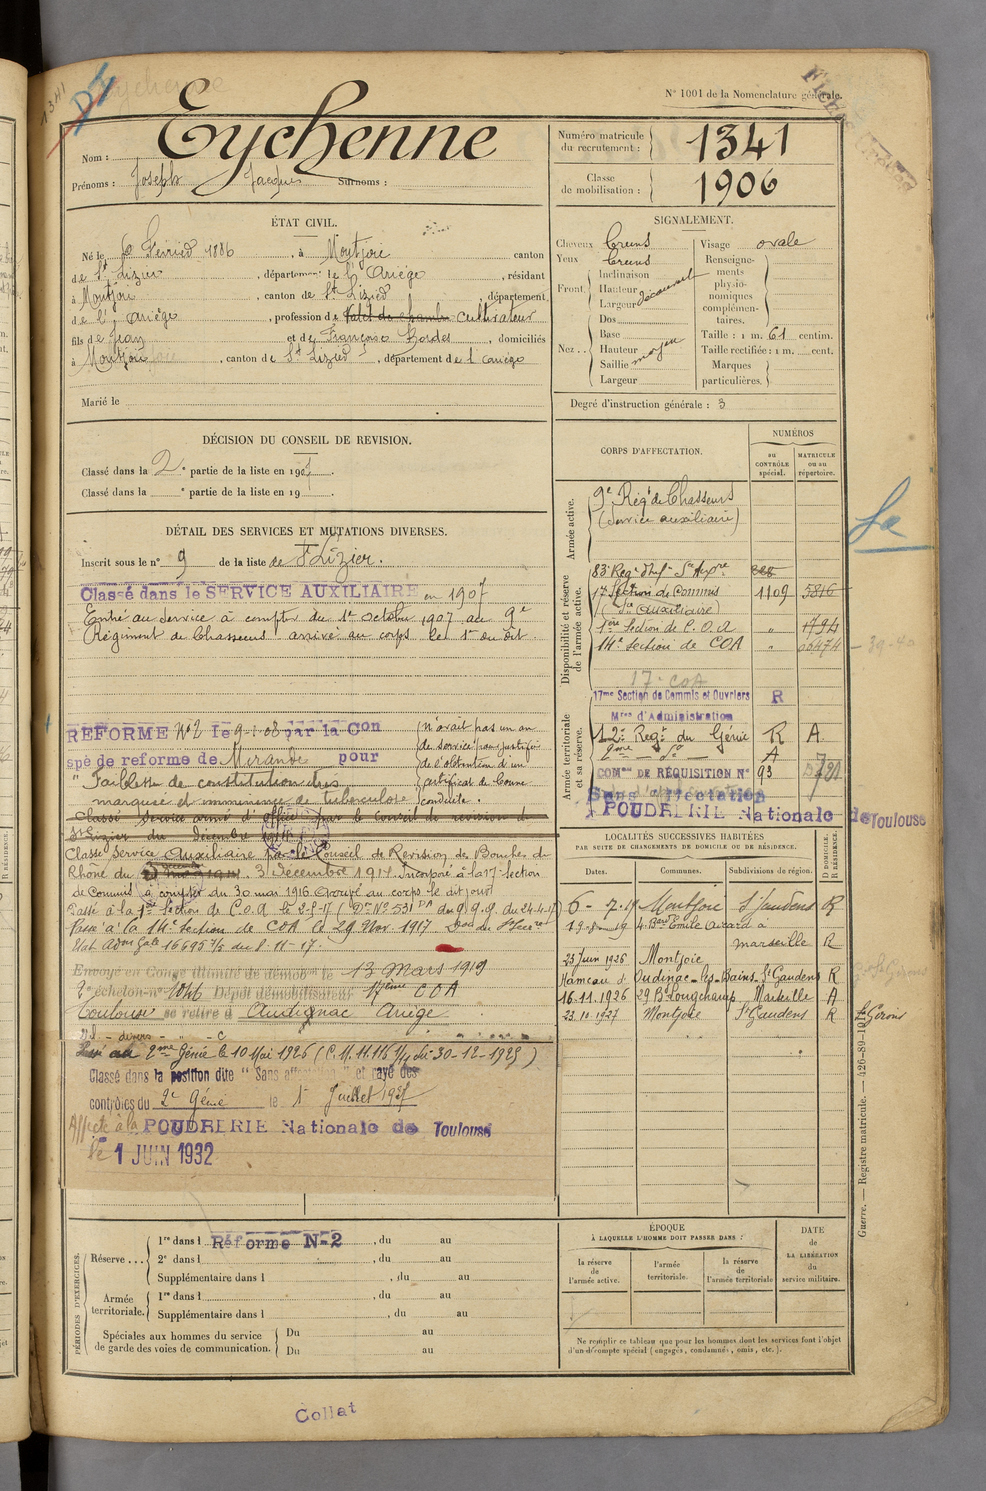 N° 1001 de la Nomenclature générale.
1341
Eychenne
Nom :
Prénoms : Joseph Jacques Surnoms :
Numéro matricule du recrutement : 1341
Classe de mobilisation : 1906
ÉTAT CIVIL.
Né le Février 1886, à Montjoie canton
de St Lizier, département de l'Ariège, résidant
à Montjoie, canton de St Lizier, département
de l'Ariège, profession de cultivateur
fils de Jean et de Françoise Bordes, domiciliés
à Montjoie, canton de St Lizier, département de l'Ariège
Marié le
SIGNALEMENT.
Cheveux bruns Visage ovale
Yeux bruns
Front. Inclinaison
Hauteur
Largeur découvert
Nez.. Dos
Base
Hauteur moyen
Saillie
Largeur
Renseignements physionomiques complémentaires.
Taille : 1 m. 61 centim.
Taille rectifiée : 1 m. cent.
Marques particulières.
Degré d'instruction générale : 3
DÉCISION DU CONSEIL DE REVISION.
Classé dans la 2e partie de la liste en 1907.
Classé dans la e partie de la liste en 19
DÉTAIL DES SERVICES ET MUTATIONS DIVERSES.
Inscrit sous le n° 9 de la liste de St Lizier.
Classé dans le SERVICE AUXILIAIRE en 1907
Entré au service à compter du 1er octobre 1907 au 9e
Régiment de Chasseurs arrivé au corps le 1er du dit.
REFORME N°2 le 9-1-08 par la Con
spé de reforme de Mirande pour
"Faiblesse de constitution très
marquée et imminence de tuberculose
(n'avait pas un an
de service pour justifier
de l'obtention d'un
certificat de bonne
conduite.
Classé service armé d'office par le conseil de revision de
St Lizier du décembre 1914
Classé Service Auxiliaire par le Conseil de Revision des Bouches du
Rhône du 3 décembre 1914. Incorporé à la 17e Section
de Commis à compter du 30 mai 1916. Arrivé au corps le dit jour
Passé à la 1ère Section de C.O.A le 2-5-17 (Don N° 531 DA du G.Q.G. du 24-4-17)
Passé à la 14e Section de COA le 29 Nov. 1917
16695 7/5 du 8-11-17.
Envoyé en Congé illimité de démob le 13 Mars 1919
2e échelon n° 1046 Dépôt démobilisateur 17ème COA
Toulouse se retire à Audignac Ariège
2me Génie le 10 Mai 1926 (C.M. 11116 1/4 du 30-12-1925)
Classé dans la position dite "Sans affectation" et rayé des
contrôles du 2e Génie le 1er Juillet 1927
Affecté à la POUDRERIE Nationale de Toulouse
le 1 JUIN 1932
CORPS D'AFFECTATION.
NUMÉROS
au CONTRÔLE spécial.
MATRICULE ou au répertoire.
Armée active.
9e Régt de Chasseurs
(Service auxiliaire)
Disponibilité et réserve de l'armée active.
83e Régt d'Inf. Sce Auxre
17e Section de Commis 1109 5816
(Sce auxiliaire)
1ère Section de C.O.A " 1794
14e Section de COA " 06474
39-40
17e COA
Armée territoriale et sa réserve.
17me Section de Commis et Ouvriers R
Mres d'Administration
2e Régt du Génie R A
2ème - do - A
COMon DE RÉQUISITION N° 93 5721
Sans affectation
POUDRERIE Nationale de Toulouse
LOCALITÉS SUCCESSIVES HABITÉES
PAR SUITE DE CHANGEMENTS DE DOMICILE OU DE RÉSIDENCE.
Dates. Communes. Subdivisions de région. D DOMICILE. R RÉSIDENCE.
6-7-19 Montjoie St Gaudens R
4 Bard Emile
Marseille R
23 Juin 1926 Montjoie
Hameau d'Audinac-les-Bains St Gaudens R
16.11.1926 29 Bd Longchamp Marseille A
23.10.1927 Montjoie St Gaudens R St Girons
PÉRIODES D'EXERCICES.
Réserve... 1re dans l Réforme N°2, du au
2e dans l, du au
Supplémentaire dans l, du au
Armée territoriale. 1re dans l, du au
Supplémentaire dans l, du au
Spéciales aux hommes du service de garde des voies de communication. Du au
Du au
ÉPOQUE
À LAQUELLE L'HOMME DOIT PASSER DANS :
la réserve de l'armée active.
l'armée territoriale.
la réserve de l'armée territoriale
DATE de LA LIBÉRATION du service militaire.
Ne remplir ce tableau que pour les hommes dont les services font l'objet
d'un décompte spécial (engagés, condamnés, omis, etc.).
Guerre. — Registre matricule. — 426-89-1917.
Collat